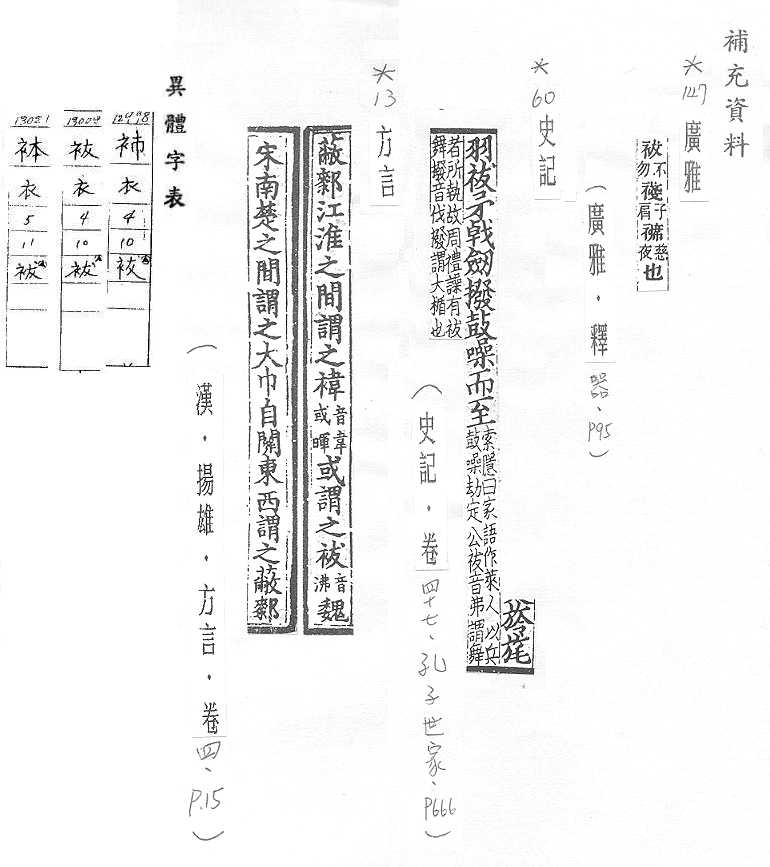 補充資料
*147 廣雅
袚不勿𧝬子肩襣慈夜也
(廣雅.釋器、P95)
*60 史記
於是旍旄
羽袚矛戟劍撥鼓噪而至
索隱曰家語作萊人以兵鼓噪劫定公袚音弗謂舞
者所執故周禮樂有袚舞撥音伐撥謂大楯也
(史記.卷四十七、孔子世家、P666)
*13 方言
蔽䣛江淮之間謂之褘音韋或暉或謂之袚音沸魏
宋南楚之間謂之大巾自關東西謂之蔽䣛
(漢.揚雄.方言.卷四、P.15)
異體字表
衣
4
10
13009
袚
衣
4
10
袚
13031
衣
5
11
袚